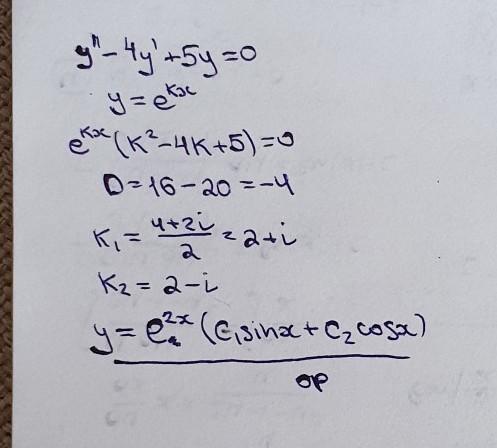 y'' - 4y' + 5y = 0
y = e^{kx}
e^{kx}(k² - 4k + 5) = 0
D = 16 - 20 = -4
k₁ = \frac{4+2i}{2} = 2+i
k₂ = 2-i
y = e^{2x}(C₁sinx + C₂cosx)
ор